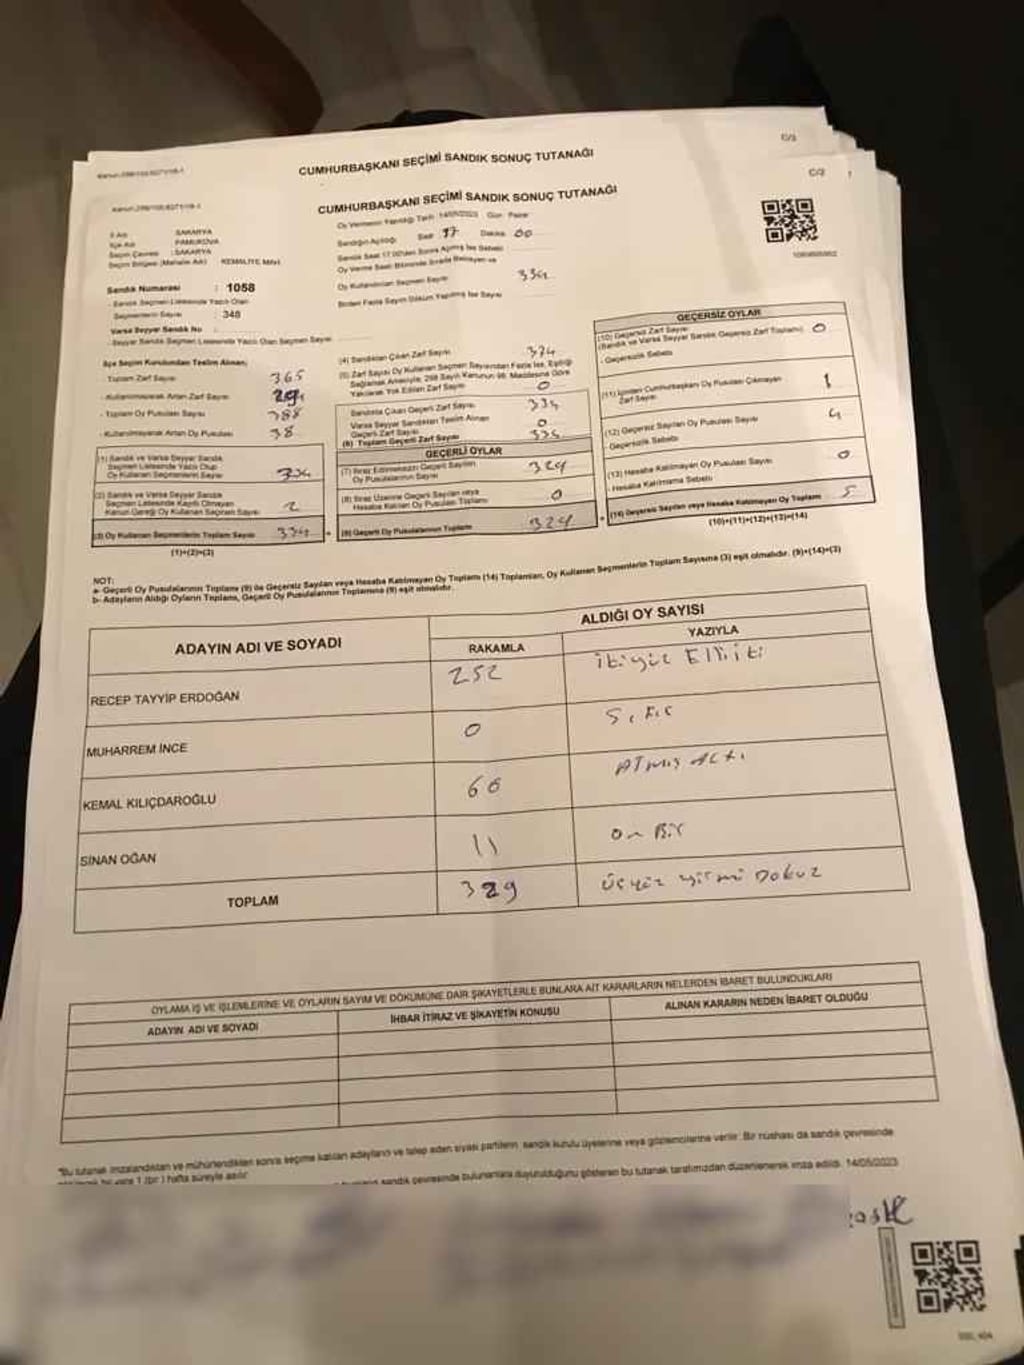 Kanun:298/103,6271/19-1
C/2
CUMHURBAŞKANI SEÇİMİ SANDIK SONUÇ TUTANAĞI
Kanun:298/103,6271/19-1
C/2
CUMHURBAŞKANI SEÇİMİ SANDIK SONUÇ TUTANAĞI
İl Adı : SAKARYA
İlçe Adı : PAMUKOVA
Seçim Çevresi : SAKARYA
Seçim Bölgesi (Mahalle Adı) KEMALİYE MAH.
Sandık Numarası : 1058
- Sandık Seçmen Listesinde Yazılı Olan
Seçmenlerin Sayısı : 348
Varsa Seyyar Sandık No :
- Seyyar Sandık Seçmen Listesinde Yazılı Olan Seçmen Sayısı
Oy Vermenin Yapıldığı Tarih: 14/05/2023 Gün: Pazar
Sandığın Açıldığı Saat 17 Dakika 00
Sandık Saat 17.00'den Sonra Açılmış İse Sebebi
Oy Verme Saati Bitiminde Sırada Bekleyen ve
Oy Kullandırılan Seçmen Sayısı 334
Birden Fazla Sayım Döküm Yapılmış İse Sayısı
İlçe Seçim Kurulundan Teslim Alınan;
- Toplam Zarf Sayısı 365
- Kullanılmayarak Artan Zarf Sayısı
- Toplam Oy Pusulası Sayısı 388
- Kullanılmayarak Artan Oy Pusulası 38
(1) Sandık ve Varsa Seyyar Sandık
Seçmen Listesinde Yazılı Olup
Oy Kullanan Seçmenlerin Sayısı
(2) Sandık ve Varsa Seyyar Sandık
Seçmen Listesinde Kayıtlı Olmayan
Kanun Gereği Oy Kullanan Seçmen Sayısı 2
(3) Oy Kullanan Seçmenlerin Toplam Sayısı 334
(1)+(2)=(3)
(4) Sandıktan Çıkan Zarf Sayısı 334
(5) Zarf Sayısı Oy Kullanan Seçmen Sayısından Fazla İse, Eşitliği
Sağlamak Amacıyla, 298 Sayılı Kanunun 98. Maddesine Göre
Yakılarak Yok Edilen Zarf Sayısı 0
Sandıkta Çıkan Geçerli Zarf Sayısı 334
Varsa Seyyar Sandıktan Teslim Alınan
Geçerli Zarf Sayısı 0
(6) Toplam Geçerli Zarf Sayısı 334
GEÇERLİ OYLAR
(7) İtiraz Edilmeksizin Geçerli Sayılan
Oy Pusulasının Sayısı 329
(8) İtiraz Üzerine Geçerli Sayılan veya
Hesaba Katılan Oy Pusulası Toplamı 0
(9) Geçerli Oy Pusulalarının Toplamı 329
GEÇERSİZ OYLAR
(10) Geçersiz Zarf Sayısı
(Sandık ve Varsa Seyyar Sandık Geçersiz Zarf Toplamı) 0
- Geçersizlik Sebebi
(11) İçinden Cumhurbaşkanı Oy Pusulası Çıkmayan
Zarf Sayısı 1
(12) Geçersiz Sayılan Oy Pusulası Sayısı 4
- Geçersizlik Sebebi
(13) Hesaba Katılmayan Oy Pusulası Sayısı 0
- Hesaba Katılmama Sebebi
(14) Geçersiz Sayılan veya Hesaba Katılmayan Oy Toplamı 5
(10)+(11)+(12)+(13)=(14)
NOT:
a- Geçerli Oy Pusulalarının Toplamı (9) ile Geçersiz Sayılan veya Hesaba Katılmayan Oy Toplamı (14) Toplamları, Oy Kullanan Seçmenlerin Toplam Sayısına (3) eşit olmalıdır. (9)+(14)=(3)
b- Adayların Aldığı Oyların Toplamı, Geçerli Oy Pusulalarının Toplamına (9) eşit olmalıdır.
ADAYIN ADI VE SOYADI
ALDIĞI OY SAYISI
RAKAMLA
YAZIYLA
RECEP TAYYİP ERDOĞAN 252 ikiyüz Elliiki
MUHARREM İNCE 0 Sıfır
KEMAL KILIÇDAROĞLU 66 ATmış ALTı
SİNAN OĞAN 11 On Bir
TOPLAM 329 üçyüz yirmi Dokuz
OYLAMA İŞ VE İŞLEMLERİNE VE OYLARIN SAYIM VE DÖKÜMÜNE DAİR ŞİKAYETLERLE BUNLARA AİT KARARLARIN NELERDEN İBARET BULUNDUKLARI
ADAYIN ADI VE SOYADI
İHBAR İTİRAZ VE ŞİKAYETİN KONUSU
ALINAN KARARIN NEDEN İBARET OLDUĞU
*Bu tutanak imzalandıktan ve mühürlendikten sonra seçime katılan adayların ve talep eden siyasi partilerin sandık kurulu üyelerine veya gözlemcilerine verilir. Bir nüshası da sandık çevresinde
1 (bir) hafta süreyle asılır.
sandık çevresinde bulunanlara duyurulduğunu gösteren bu tutanak tarafımızdan düzenlenerek imza edildi. 14/05/2023